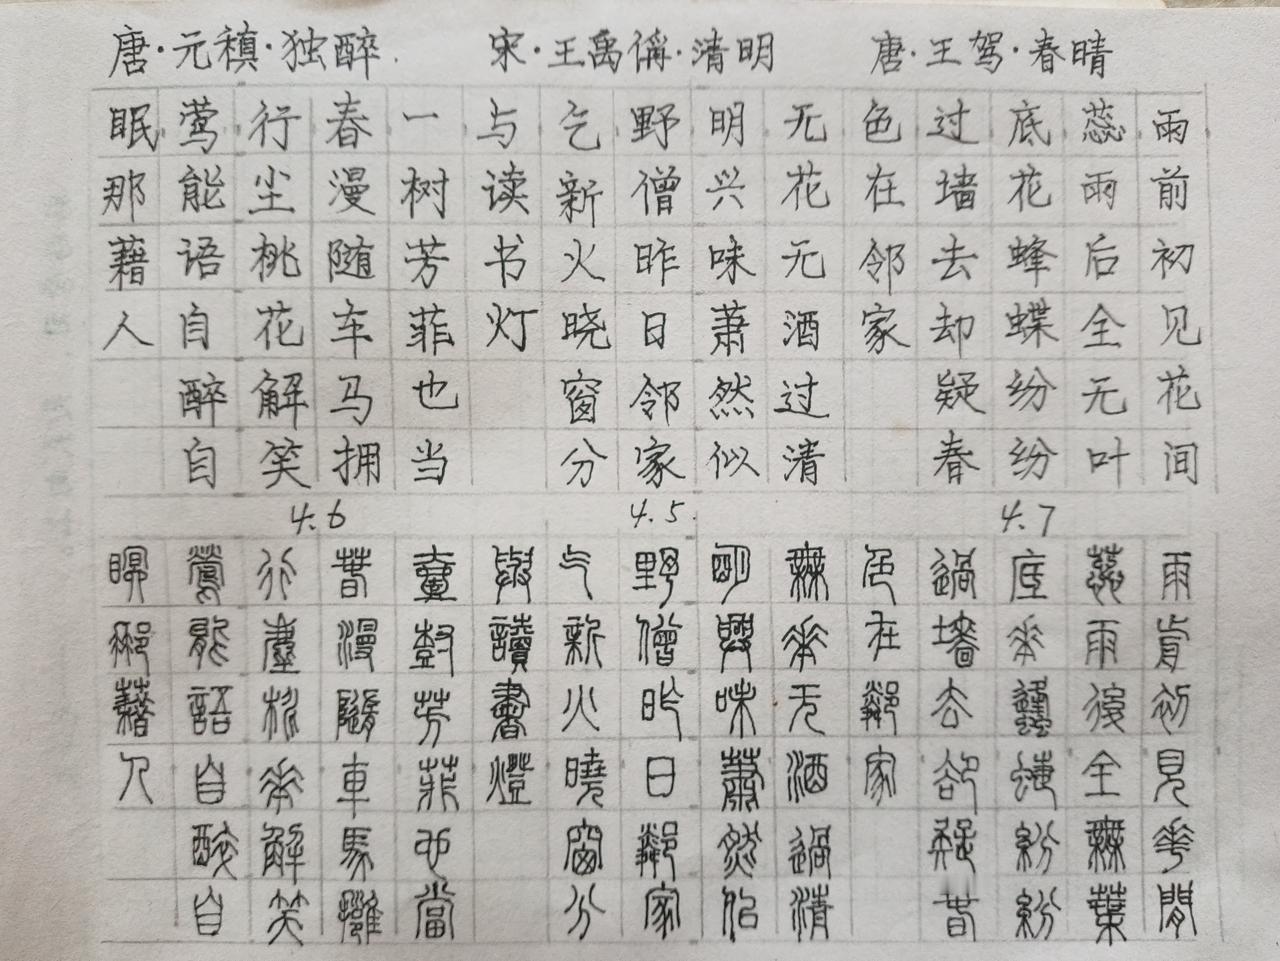 唐·元稹·独醉. 宋·王禹偁·清明 唐·王驾·春晴
雨前初见花间
蕊雨后全无叶
底花蜂蝶纷纷
过墙去却疑春
色在邻家
无花无酒过清
明兴味萧然似
野僧昨日邻家
乞新火晓窗分
与读书灯
一树芳菲也当
春漫随车马拥
行尘桃花解笑
莺能语自醉自
眠那藉人
4.6 4.5. 4.7
雨前初見花閒
蕊雨後全無葉
底花蠭蜨紛紛
過墻去卻疑春
色在鄰家
無花无酒過清
明興味蕭然佀
野僧昨日鄰家
气新火曉窗分
與讀書燈
壹樹芳菲也當
春漫隨車馬擁
行塵桃花解笑
鶯能語自醉自
眠那藉人